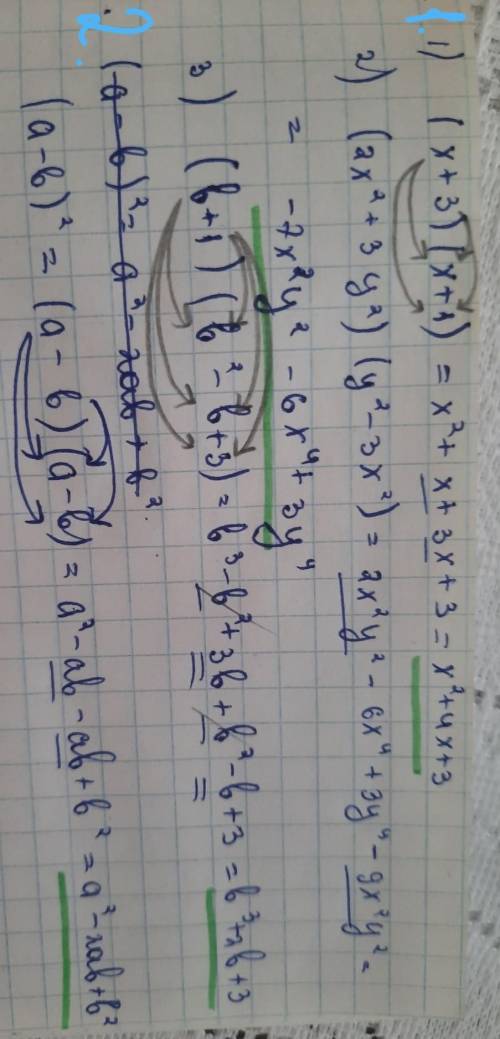 1. 1) (x+3)(x+1) = x²+x+3x+3 = x²+4x+3
2) (2x²+3y²)(y²-3x²) = 2x²y² - 6x⁴+3y⁴-9x²y² =
= -7x²y² - 6x⁴+3y⁴
3) (b+1)(b²-b+3) = b³-b²+3b+b²-b+3 = b³+2b+3
2. (a-b)² = a²-2ab+b²
(a-b)² = (a-b)(a-b) = a²-ab-ab+b² = a²-2ab+b²